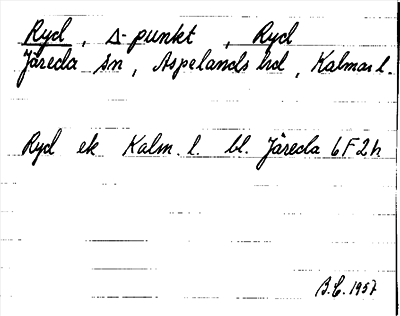 Ryd, Δ-punkt, Ryd
Järeda sn, Aspelands hd, Kalmar l.
Ryd ek Kalm. l. bl. Järeda 6F2h
B.E. 1957